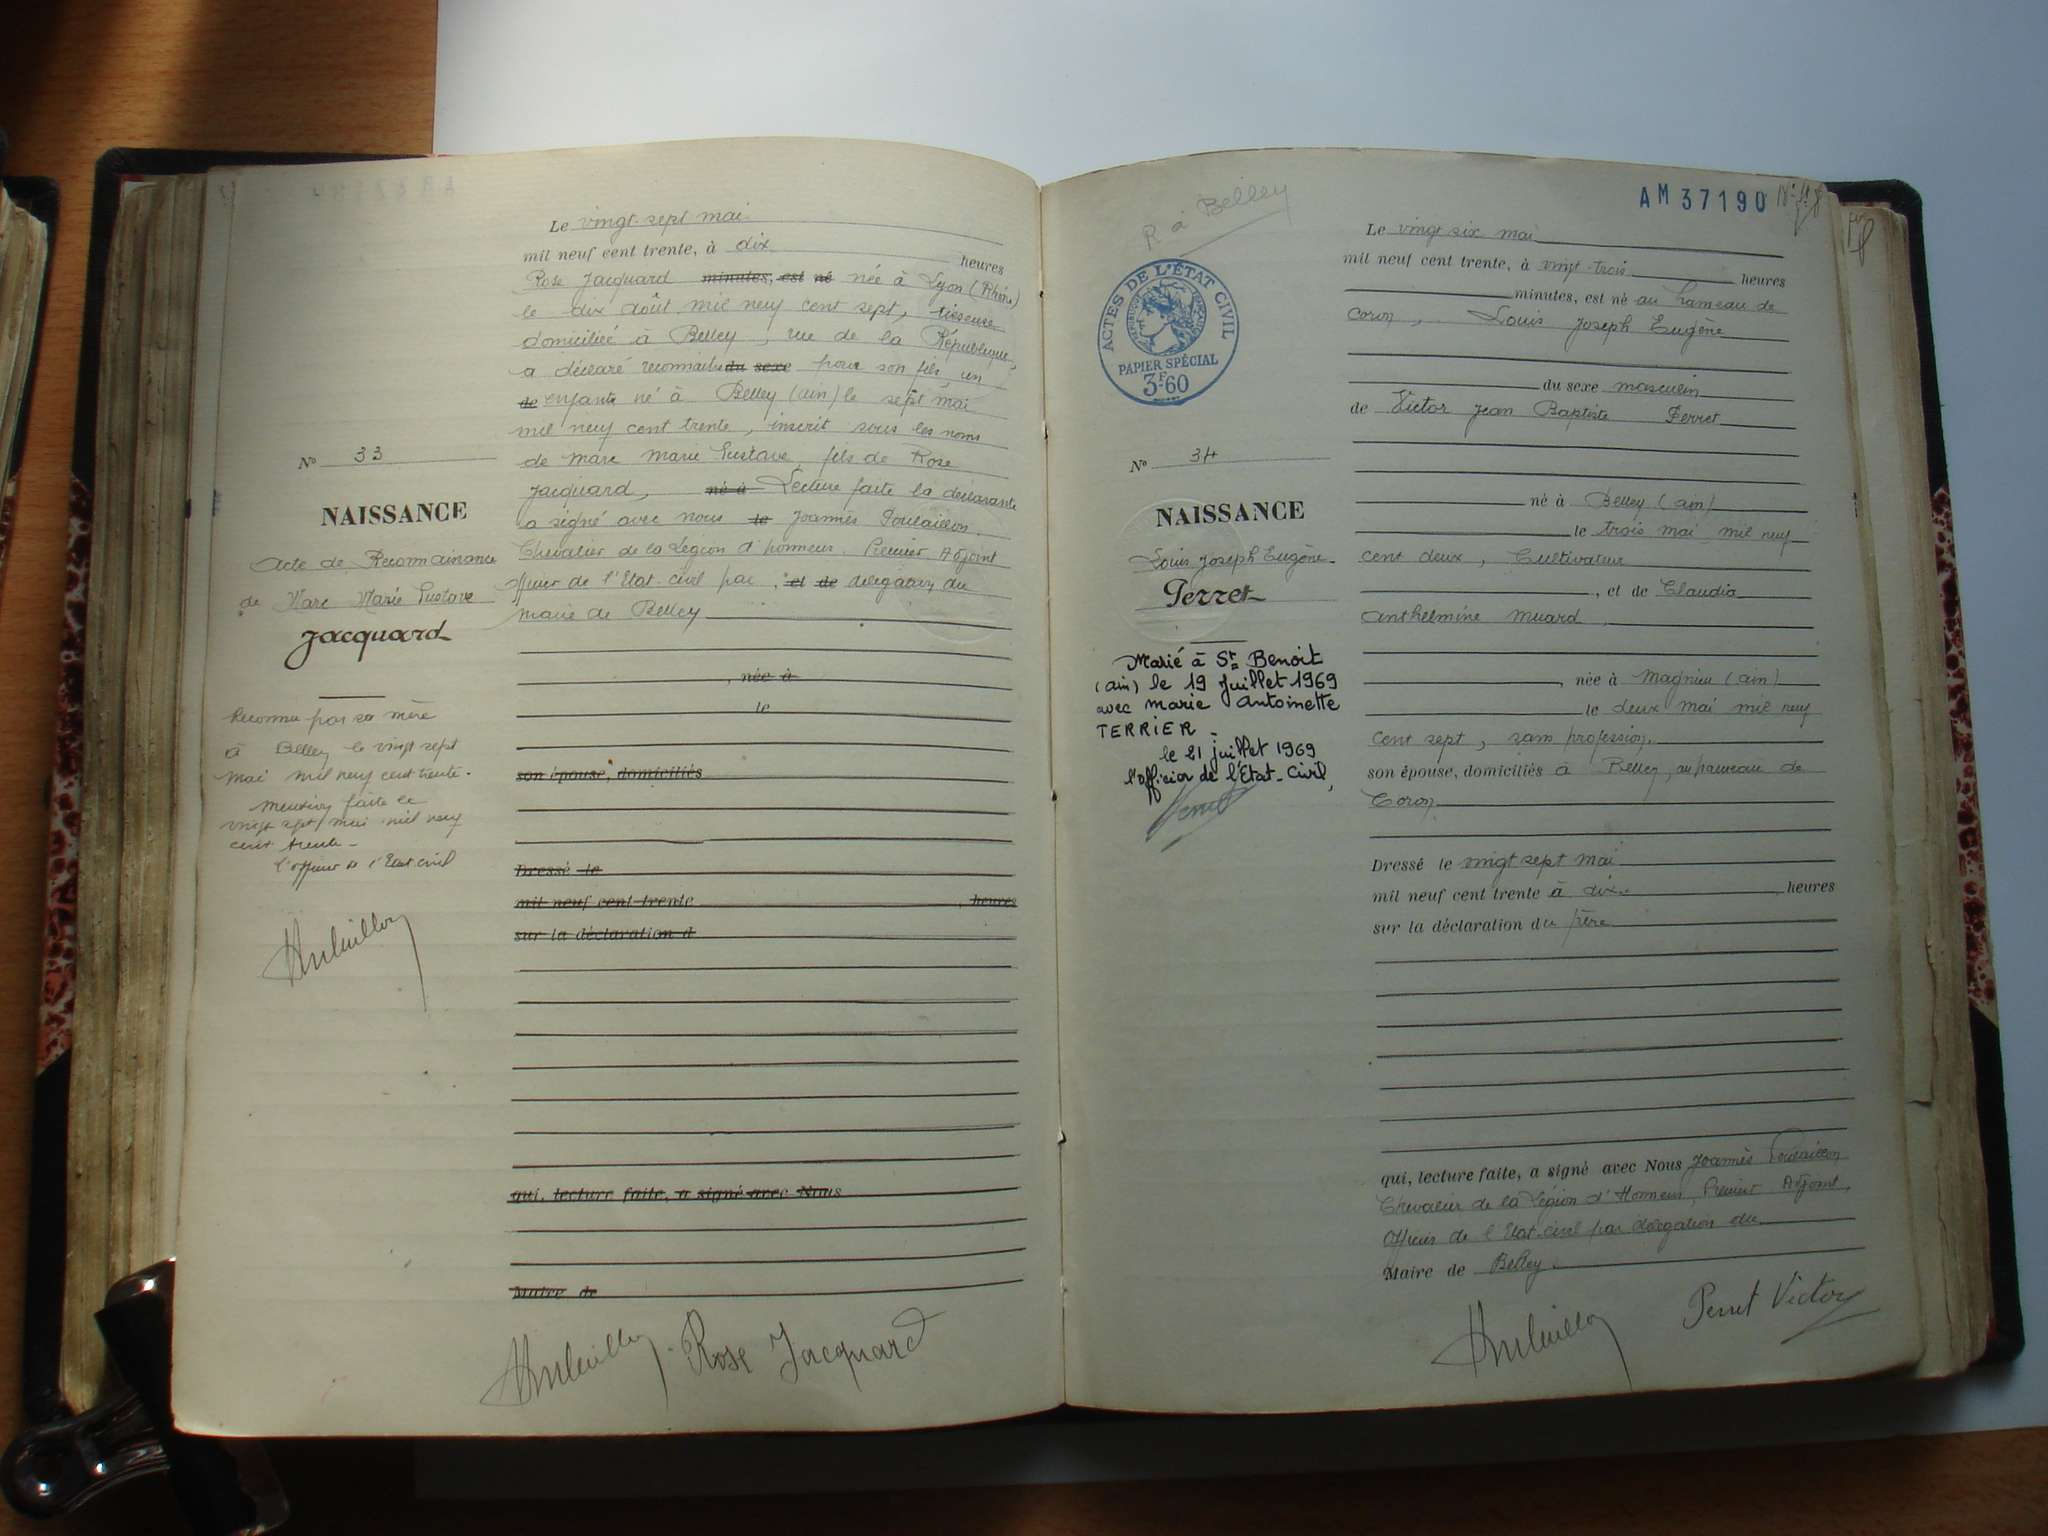 Le vingt-sept mai
mil neuf cent trente, à dix heures
Rose Jacquard minutes, est né née à Lyon (Rhône)
le dix août mil neuf cent sept, tisseuse
domiciliée à Belley, rue de la République,
a déclaré reconnaitre du sexe pour son fils, un
de enfant né à Belley (ain) le sept mai
mil neuf cent trente, inscrit sous les noms
de Marc Marie Gustave, fils de Rose
Jacquard, né à Lecture faite la déclarante
a signé avec nous le Joannès Poulaillon
Chevalier de la Légion d'honneur, Premier Adjoint
officier de l'Etat-civil par, et de délégation du
maire de Belley
, née à
le
son épouse, domiciliés
Dressé le
mil neuf cent trente , heures
sur la déclaration d
qui, lecture faite, a signé avec Nous
Maire de
Rose Jacquard
No 33
NAISSANCE
Acte de Reconnaissance
de Marc Marie Gustave
Jacquard
Reconnu par sa mère
à Belley le vingt sept
mai mil neuf cent trente.
Mention faite le
vingt sept mai mil neuf
cent trente
L'officier de l'Etat civil
R à Belley
AM 37190
ACTES DE L'ÉTAT CIVIL
PAPIER SPÉCIAL
3F60
No 34
NAISSANCE
Louis Joseph Eugène
Perret
Marié à St Benoit
(ain) le 19 Juillet 1969
avec marie Antoinette
TERRIER
le 21 juillet 1969
l'officier de l'Etat-Civil,
Le vingt six mai
mil neuf cent trente, à vingt-trois heures
minutes, est né au hameau de
Coron, Louis Joseph Eugène
du sexe masculin
de Victor Jean Baptiste Perret
né à Belley (ain)
le trois mai mil neuf
cent deux, Cultivateur
, et de Claudia
Anthelmine Muard
, née à Magnieu (ain)
le deux mai mil neuf
cent sept, sans profession,
son épouse, domiciliés à Belley, au hameau de
Coron
Dressé le vingt sept mai
mil neuf cent trente à dix heures
sur la déclaration du père
qui, lecture faite, a signé avec Nous Joannès Poulaillon
Chevalier de la Légion d'Honneur, Premier Adjoint,
Officier de l'Etat-civil par délégation du
Maire de Belley.
Perret Victor